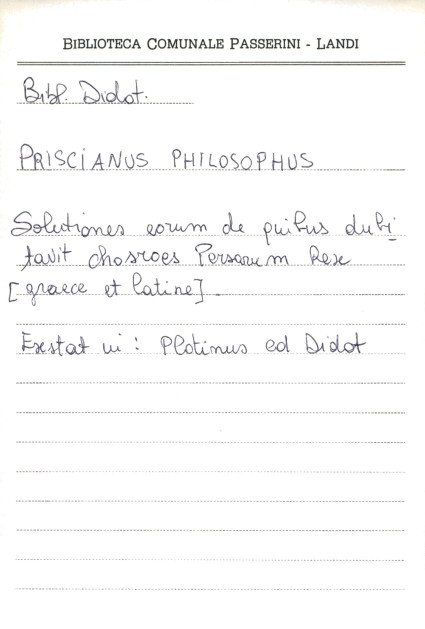 BIBLIOTECA COMUNALE PASSERINI - LANDI
Bibl. Didot.
PRISCIANUS PHILOSOPHUS
Solutiones eorum de quibus dubi
tavit Chosroes Persarum Rex
[graece et latine]
Exstat in: Plotinus ed Didot